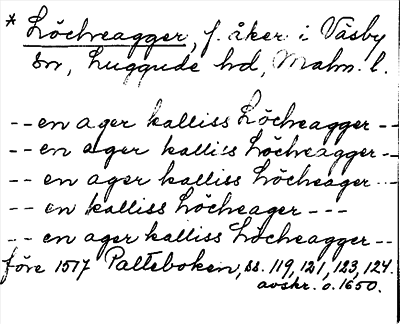 * Löchreagger, f. åker i Väsby
sn, Luggude hd, Malm. l.
-- en ager kalliss Löchreagger --
-- en ager kalliss Löchreagger --
-- en ager kalliss Löchreager --
-- en kalliss Löchreager ---
-- en ager kalliss Löchreagger --
före 1517 Palteboken, ss. 119, 121, 123, 124.
avskr. o. 1650.